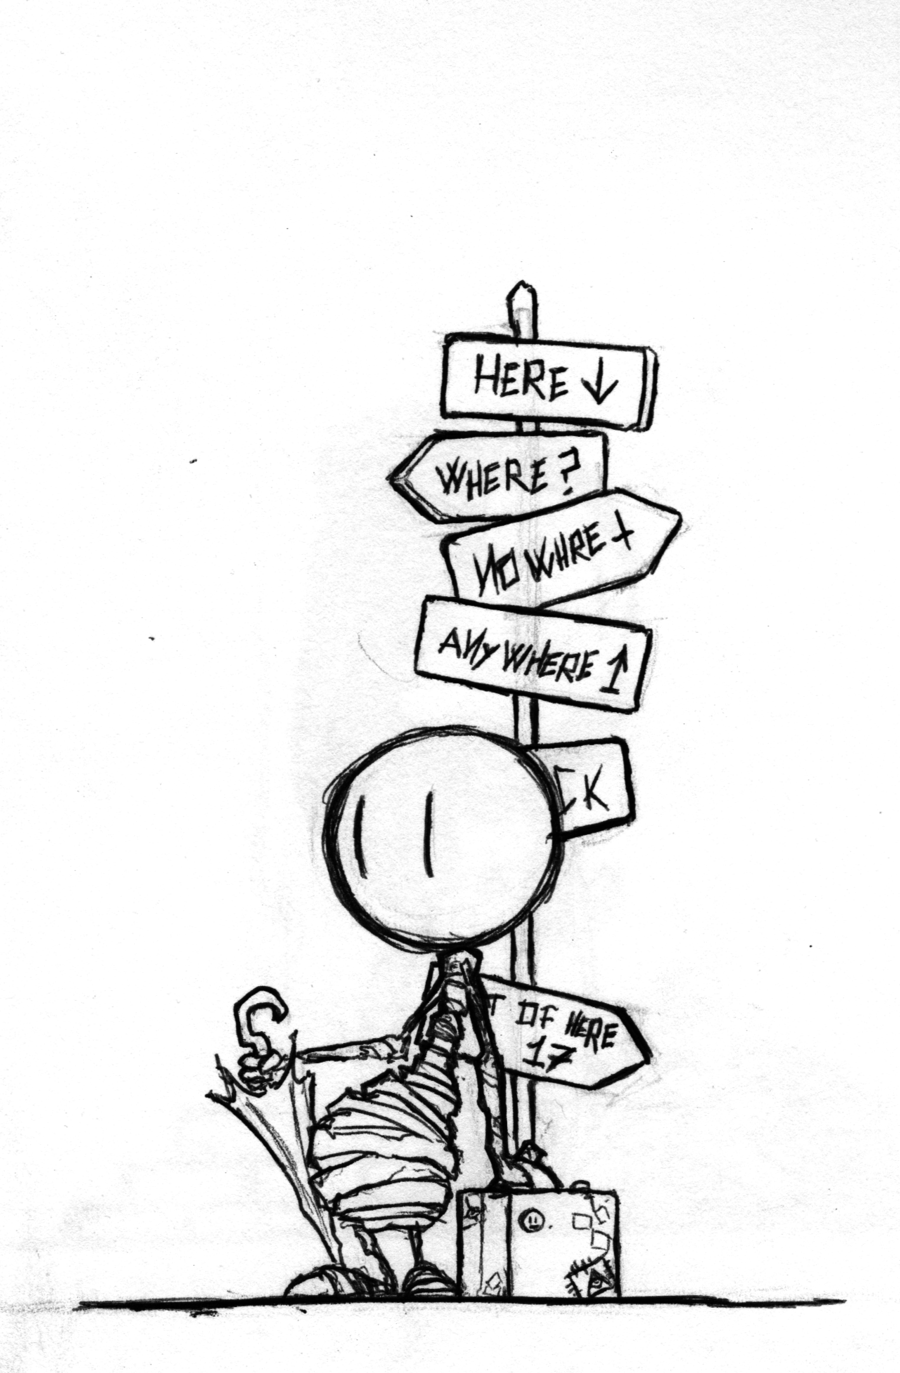 HERE ↓
WHERE?
NO WHRE +
ANYWHERE ↑
CK
T OF HERE
17